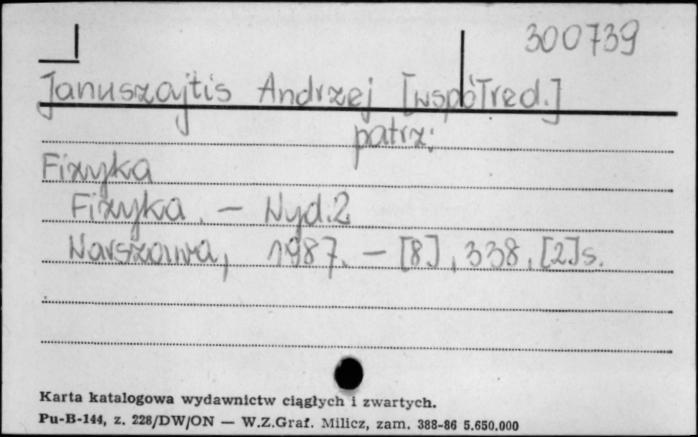 300739
Januszajtis Andrzej [współred.]
patrz:
Fizyka
Fizyka. — Wyd. 2
Warszawa, 1987. — [8], 338, [2] s.
Karta katalogowa wydawnictw ciągłych i zwartych.
Pu-B-144, z. 228/DW/ON — W.Z.Graf. Milicz, zam. 388-86 5.650.000